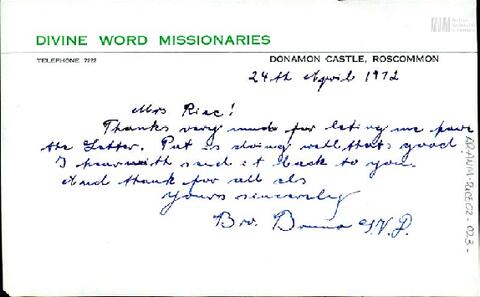 DIVINE WORD MISSIONARIES
TELEPHONE 7222
DONAMON CASTLE, ROSCOMMON
24th April 1972
Mrs Riac!
Thanks very much for leting me have
the Letter. Pat is doing well thats good.
I hearwith send it back to you.
And thank for all els
Yours sincerely
Bro. Bruno S.V.D.